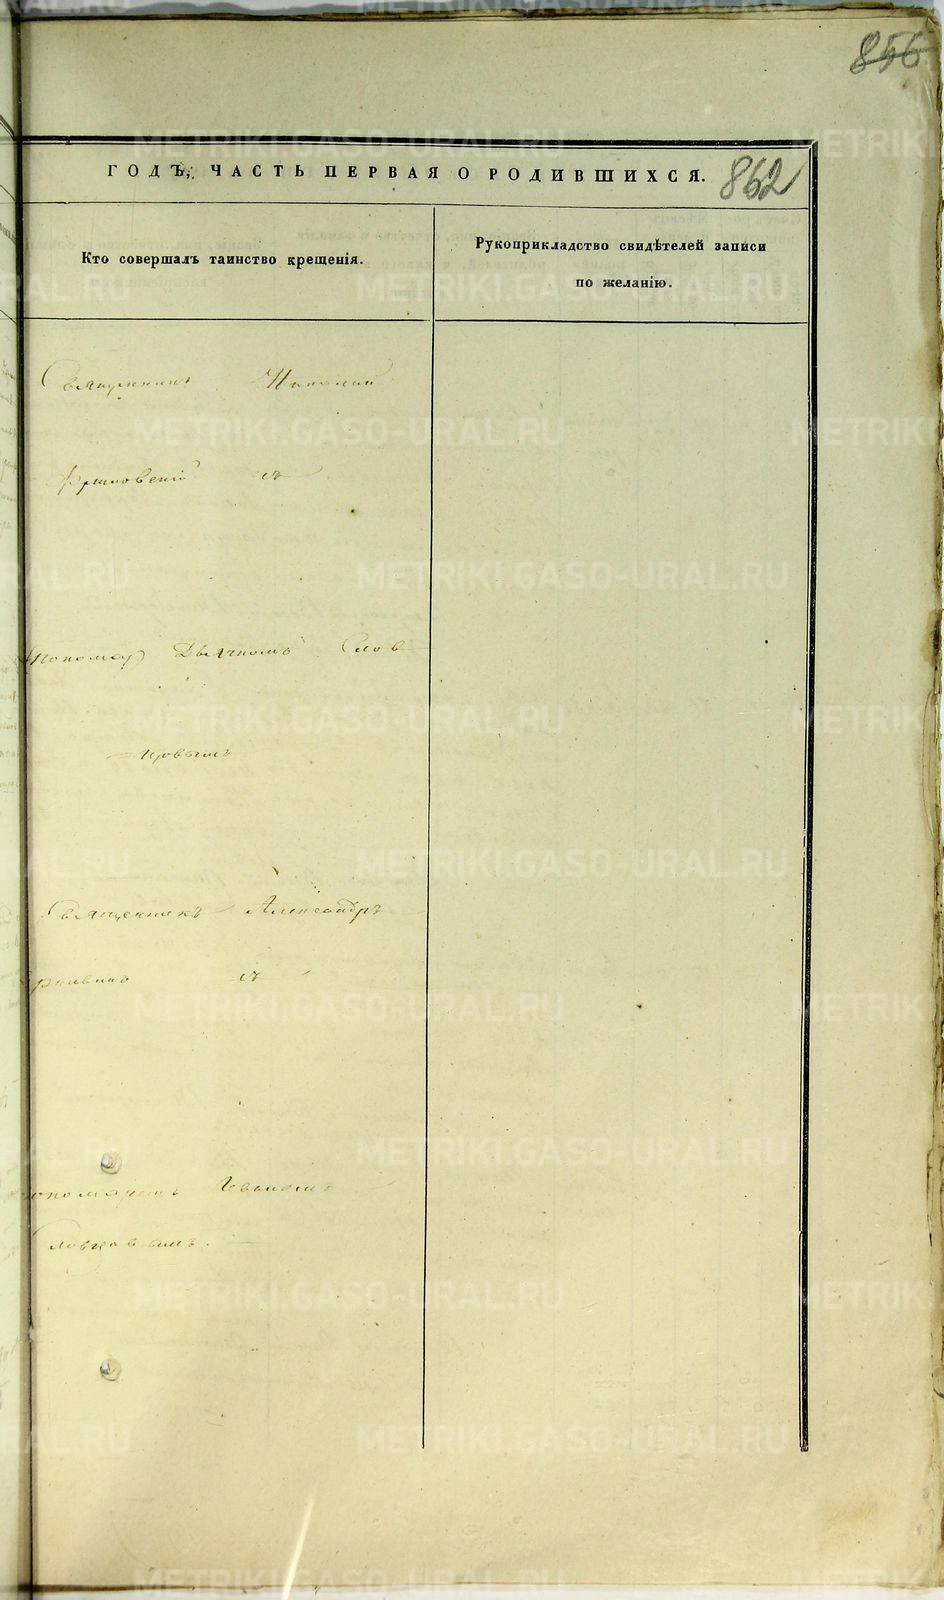 856
ГОДЪ, ЧАСТЬ ПЕРВАЯ О РОДИВШИХСЯ.
862
Кто совершалъ таинство крещенія.
Рукоприкладство свидѣтелей записи
по желанію.
Священникъ Николай
съ
Дьячкомъ Слов
цовымъ
Священникъ Александръ
съ
Иваномъ
Словцовымъ.
METRIKI.GASO-URAL.RU